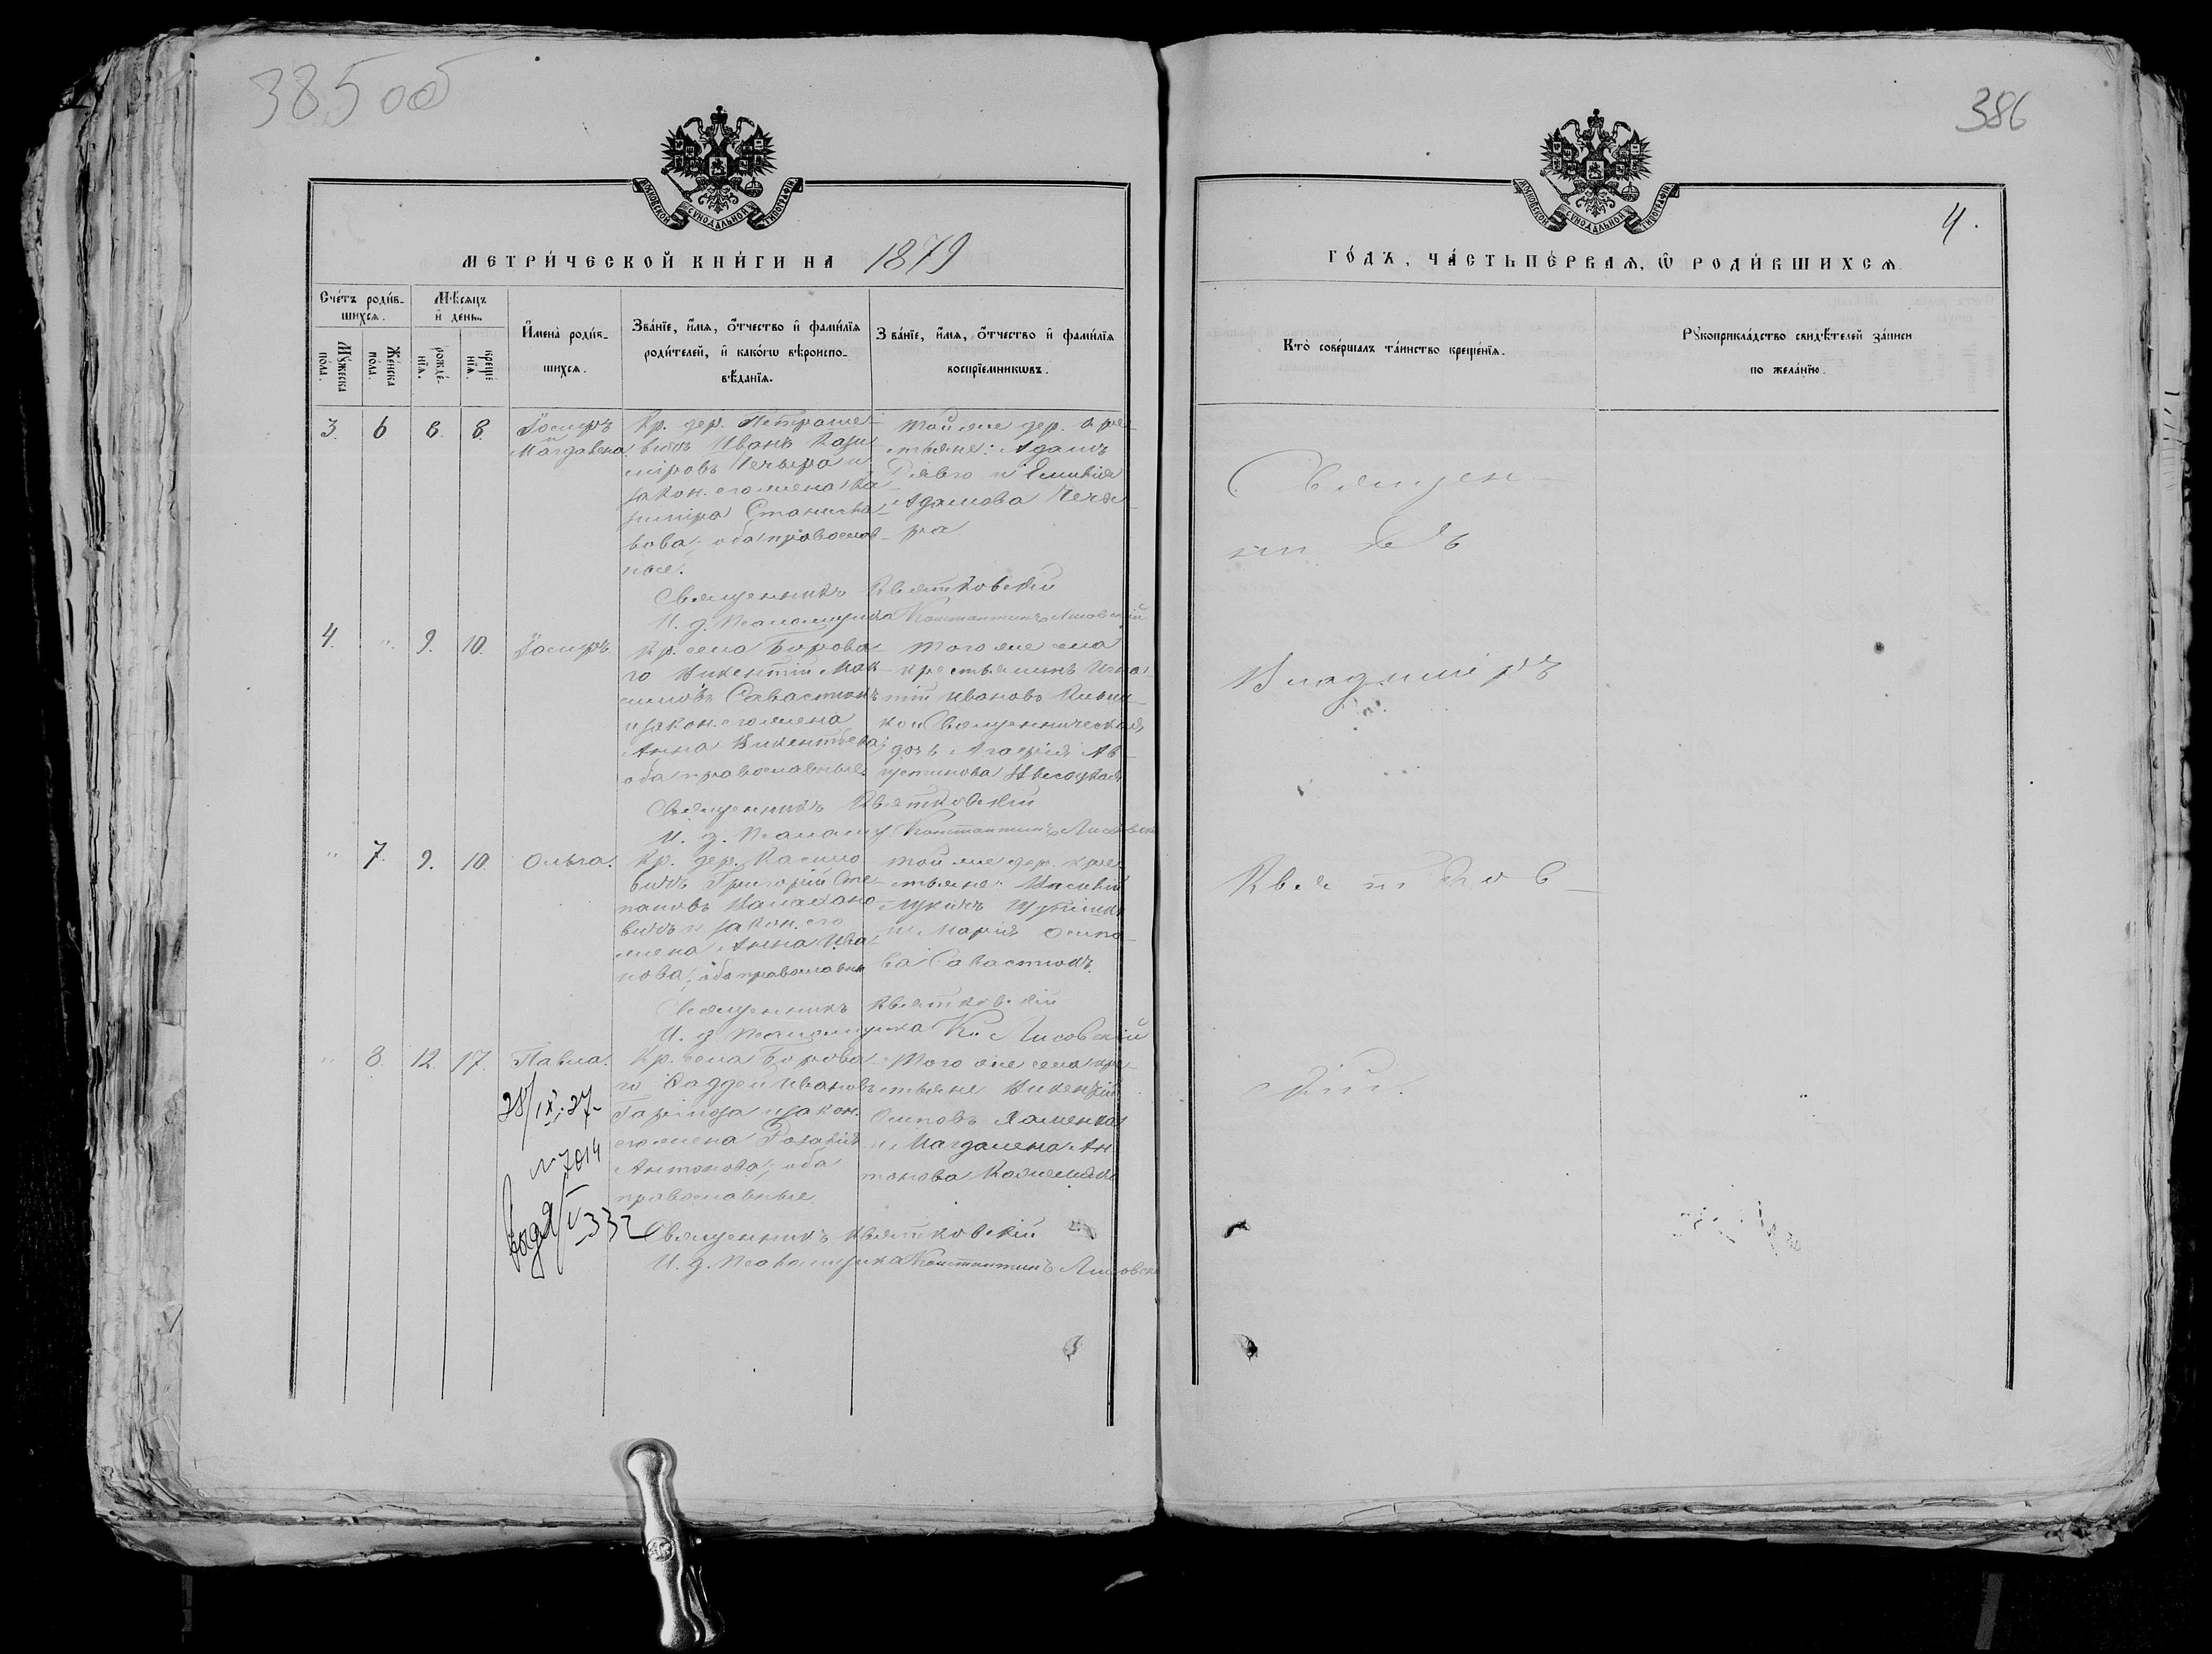 385 об
386
МОСКОВСКОЙ СѴНОДАЛЬНОЙ ТИПОГРАФІИ
МЕТРИ́ЧЕСКОЙ КНИ́ГИ НА 1879
Сче́тъ роди́в-
шихсѧ.
Мꙋ́жеска по́ла.
Же́нска по́ла.
Мѣ́сѧцъ
и҆ день.
рожде́-
нїѧ.
креще́
нїѧ.
И҆мена̀ роди́в-
шихсѧ.
Зва́нїе, и҆́мѧ, ѻ҆́тчество и҆ фами́лїѧ
роди́телей, и҆ како́гѡ вѣроиспо-
вѣ́данїѧ.
Зва́нїе, и҆́мѧ, ѻ҆́тчество и҆ фами́лїѧ
воспрїемникѡвъ.
3. 6 6. 8.
Іосифъ
и
Магдалена.
Кр. дер. Петраше-
вичъ Иванъ Кази-
міровъ Чечыра и
закон. его жена Ка-
зиміра Станисла-
вова; оба православ-
ные.
той же дер. кре-
стьяне: Адамъ
и Емилія
Адамова Чечы-
ра.
Священникъ Квятковскій
И. д. Псаломщика Константинъ Лисовскій
4. " 9. 10. Іосифъ.
Кр. села Борова-
го Викентій Мак-
симовъ Савастюкъ
и закон. его жена
Анна Викентьева;
оба православные.
того же села
крестьянинъ Игна-
тій Ивановъ
и Священническая
дочь Ав-
густинова
Священникъ Квятковскій
И. д. Псаломщ Константинъ Лисовскі
" 7. 9. 10. Ольга.
Кр. дер.
вичъ Григорій Сте-
пановъ
вичъ и закон. его
жена Анна Ива-
нова; оба православны
той же дер. кре-
стьяне: Василій
и Марія Осипо-
ва Савастюкъ.
Священникъ Квятковскій
И. д. Псаломщика К. Лисовскій
" 8. 12. 17. Павла.
28/IX-27-
№ 7014
332
Кр. села Борова-
го Фаддей Ивановъ
и закон.
его жена Розалія
Антонова; оба
православные.
Того же села кре-
стьяне Викентій
Осиповъ
и Магдалена Ан-
тонова
Священникъ Квятковскій
И. д. Псаломщика Константинъ Лисовскі
МОСКОВСКОЙ СѴНОДАЛЬНОЙ ТИПОГРАФІИ
4.
ГО́ДЪ, ЧА́СТЬ ПЕ́РВАѦ, Ѽ РОДИ́ВШИХСѦ.
Кто̀ соверша́лъ та́инство креще́нїѧ.
Рꙋкоприкла́дство свидѣ́телей за́писи
по жела́нїю.
Священ-
никъ
Владиміръ
Квятков-
скій.